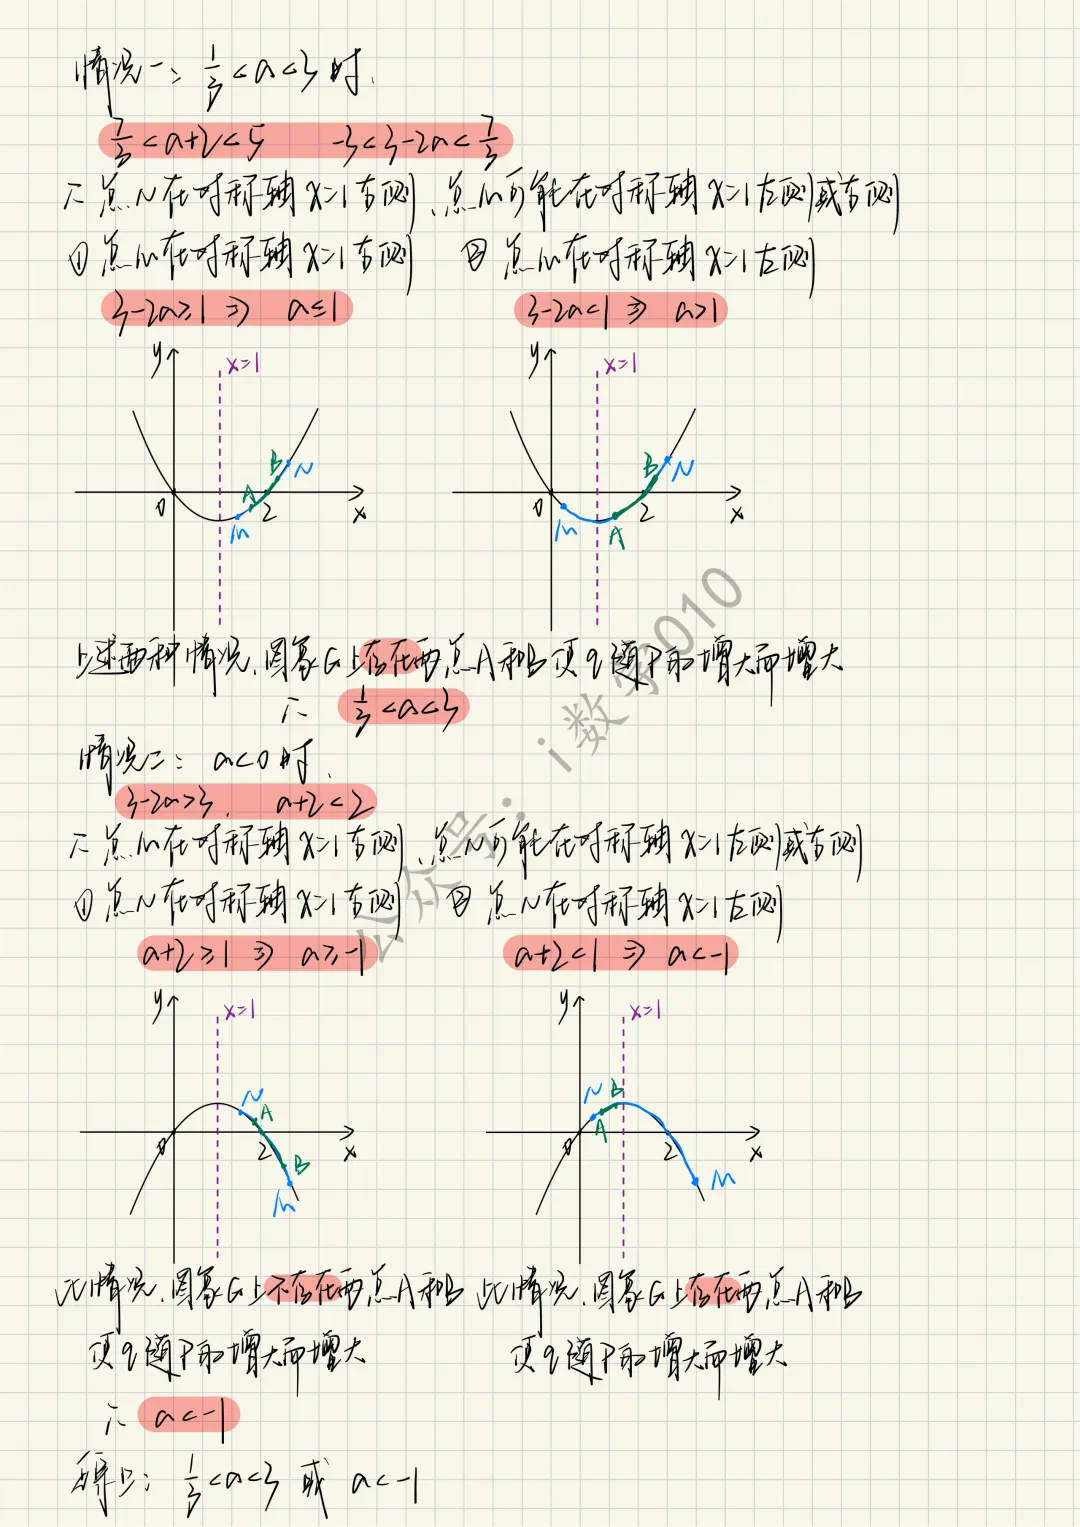 情况一: 1/3<a<3时,
7/3<a+2<5 -3<3-2a<7/3
∴点N在对称轴x=1右侧,点M可能在对称轴x=1左侧或右侧
①点M在对称轴x=1右侧 ②点M在对称轴x=1左侧
3-2a≥1⇒ a≤1 3-2a<1⇒ a>1
y x=1 y x=1
B N B N
0 A 2 x 0 2 x
M M A
上述两种情况,图象G上存在两点A和B使q随P的增大而增大
∴ 1/3<a<3
情况二: a<0时,
3-2a>3, a+2<2
∴点M在对称轴x=1右侧,点N可能在对称轴x=1左侧或右侧
①点N在对称轴x=1右侧 ②点N在对称轴x=1左侧
a+2≥1⇒ a≥-1 a+2<1⇒ a<-1
y x=1 y x=1
N A N B
0 2 x 0 A 2 x
B M
M
此情况,图象G上不存在两点A和B 此情况,图象G上存在两点A和B
使q随P的增大而增大 使q随P的增大而增大
∴ a<-1
综上: 1/3<a<3 或 a<-1
公众号:i数学010